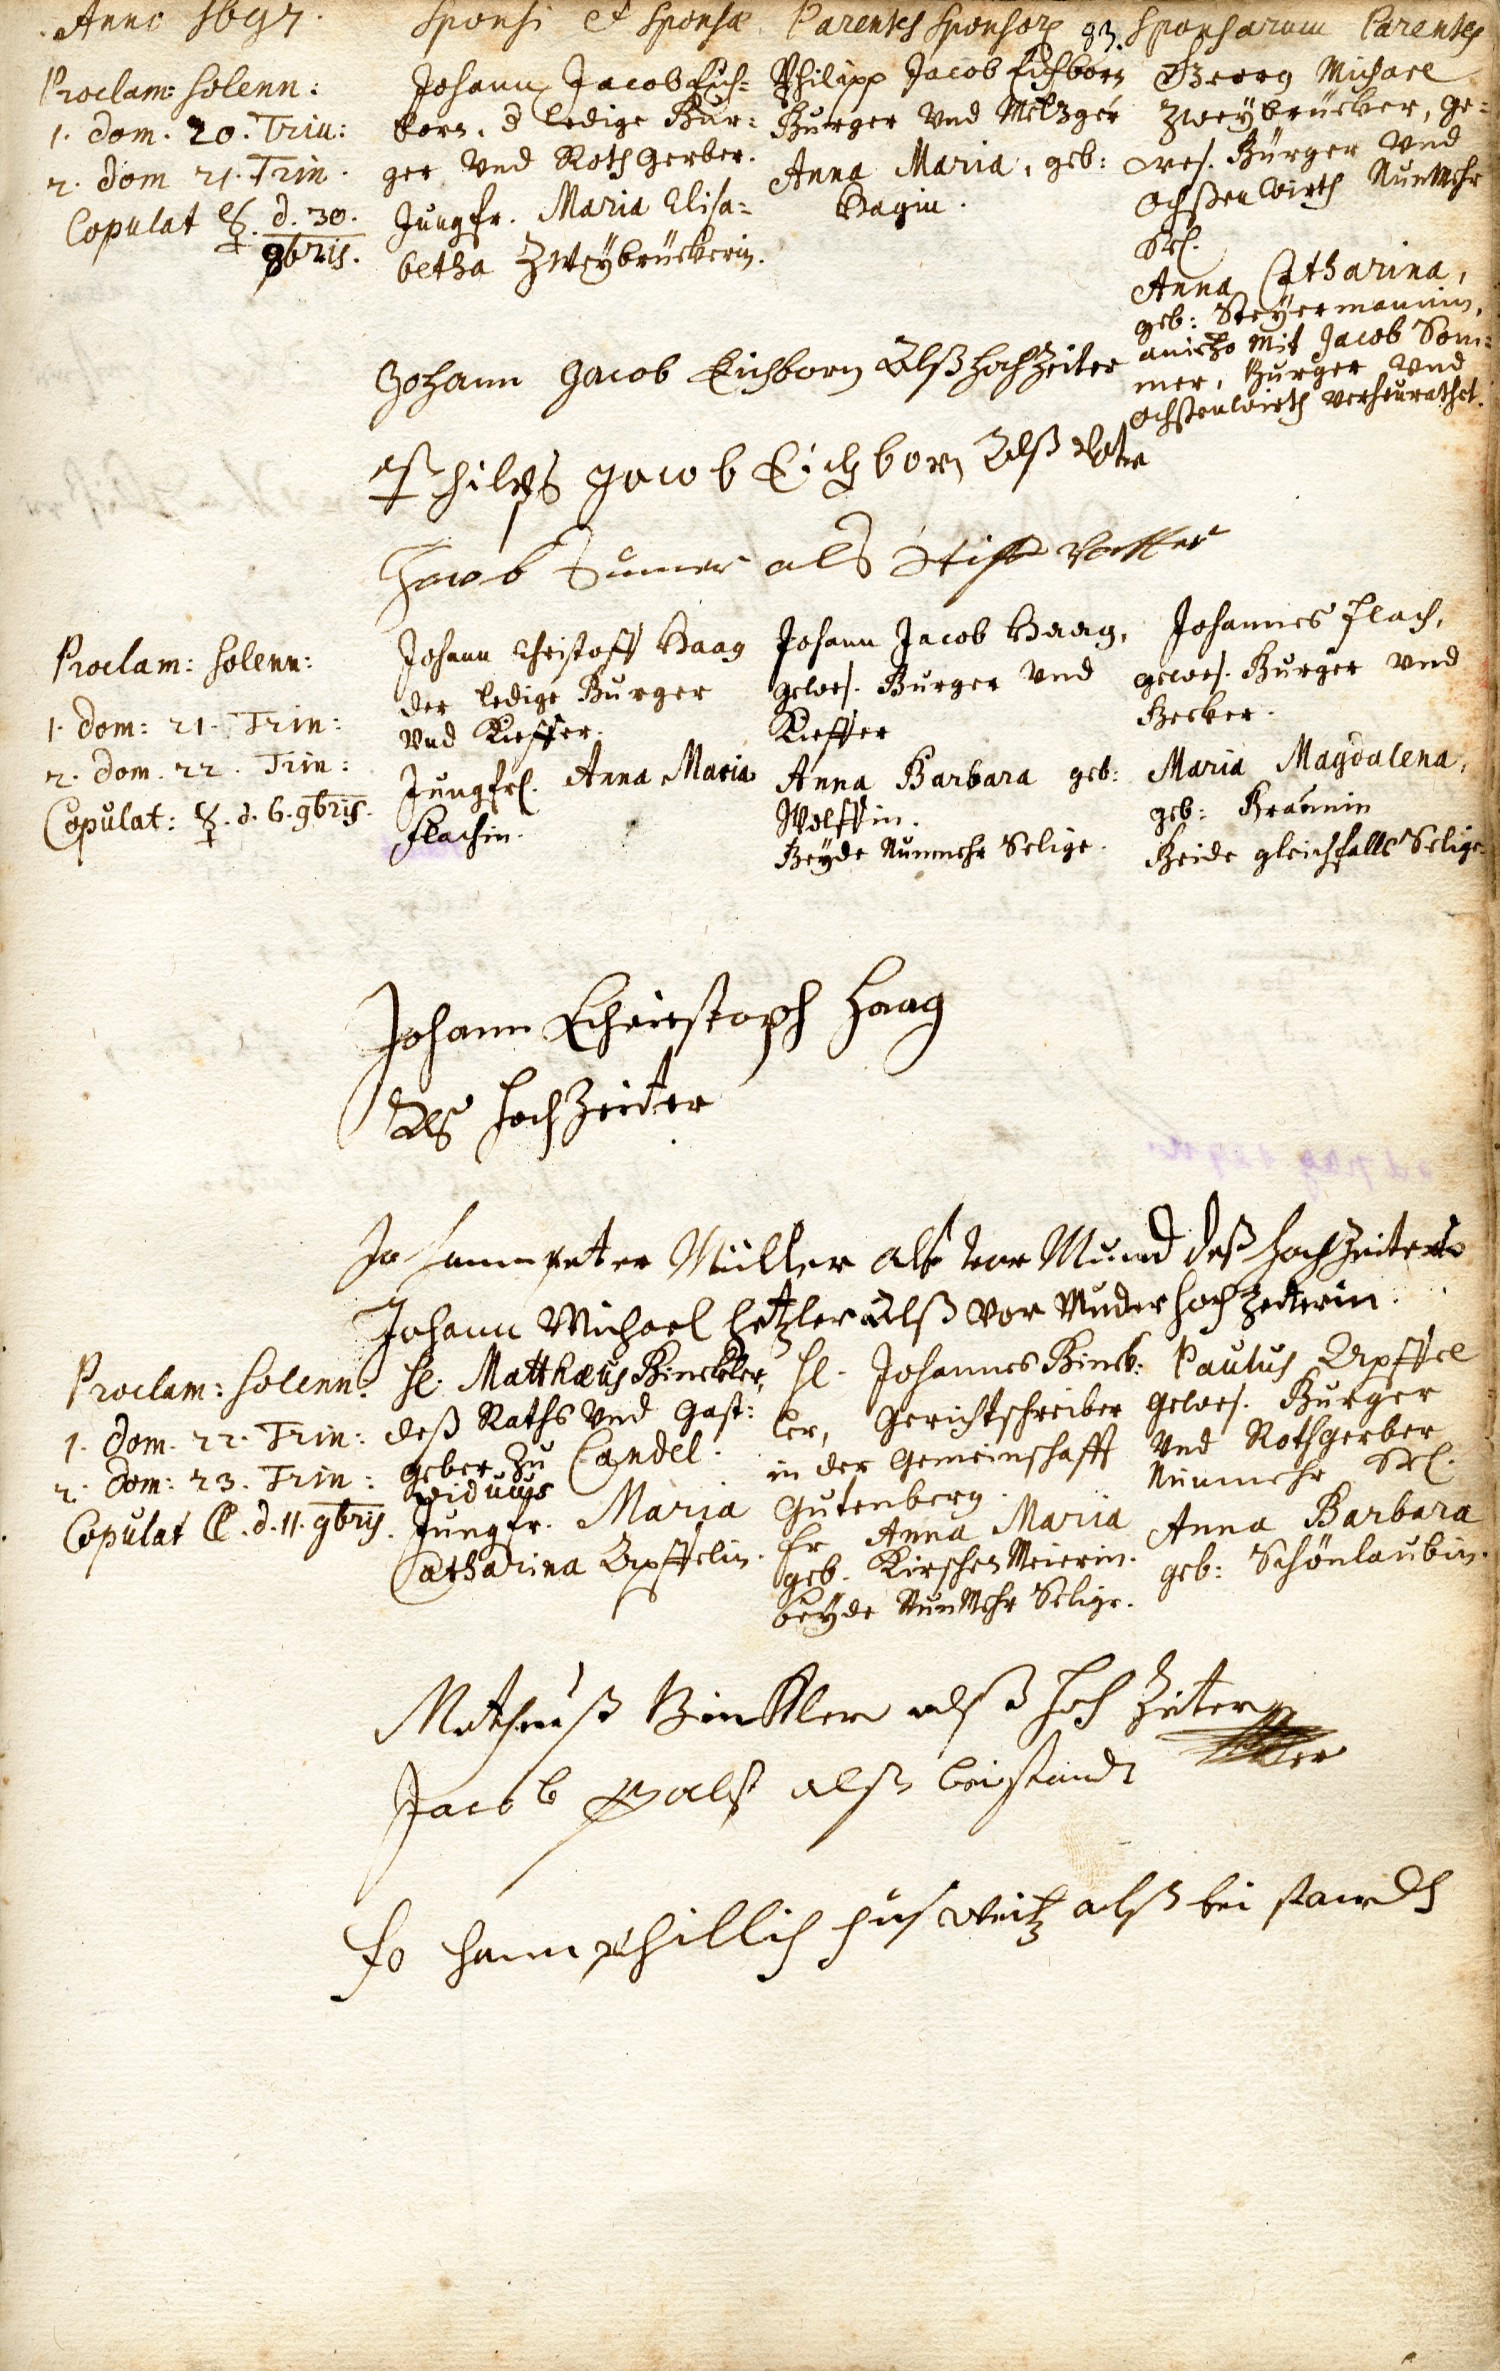 Anno 1697. Sponsi et Sponsæ. Parentes Sponsor. 83. Sponsarum Parentes
Proclam: solenn:
1. Dom. 20. Trin:
2. Dom 21. Trin.
Copulat ☿. d. 30.
8bris.
Johann Jacob Eich=
born, d ledige Bur=
ger und Rothgerber.
Jungfr. Maria Elisa=
betha Zweybrückerin.
Philipp Jacob Eichborn
Burger und Metzger
Anna Maria, geb:
Hagin.
Georg Michael
Zweybrücker, ge=
wes. Burger und
Ochßenwirth NunMehr
Sel.
Anna Catharina,
geb: Steyermännin,
anietzo mit Jacob Som=
mer, Burger und
Ochßenwirth verheurathet.
Johann Jacob Eichborn Alß hochzeiter
Philips Jacob Eichborn Alß Vater
Jacob Sumer als Stiff Vatter
Proclam: solenn:
1. Dom: 21. Trin:
2. Dom. 22. Trin:
Copulat: ☿. d. 6. 9bris.
Johann Christoff Haag
der ledige Burger
und Kieffer.
Jungfr. Anna Maria
Flachin.
Johann Jacob Haag,
gewes. Burger und
Kieffer
Anna Barbara geb:
Wolffin.
Beyde Nunmehr Selige.
Johannes Flach,
gewes. Burger und
Becker.
Maria Magdalena,
geb: Braunin
Beide gleichfalls Selige.
Johann Christoph Haag
Als hochzeiter
Johann peter Müller alß vor Mund deß hochzeiters
Johann Michael Hetzler Alß vor Munder hochzeiterin.
Proclam: solenn:
1. Dom. 22. Trin:
2. Dom: 23. Trin:
Copulat ☾. d. 11. 9bris.
H. Matthæus Binckler,
deß Raths und Gast=
geber zu Candel.
viduus
Jungfr. Maria
Catharina Apffelin.
H. Johannes Binck=
ler, Gerichtschreiber
in der Gemeinschafft
Gutenberg.
Fr Anna Maria
geb. KirschenMeierin.
beyde NunMehr Selige.
Paulus Apffel
gewes. Burger
und Rothgerber
Nunmehr Sel.
Anna Barbara
geb: Schönlaubin.
Matheuß Binckler alß hoch Zeiter
Jacob Pabst alß beistandt
Johann phillich alß bei standt